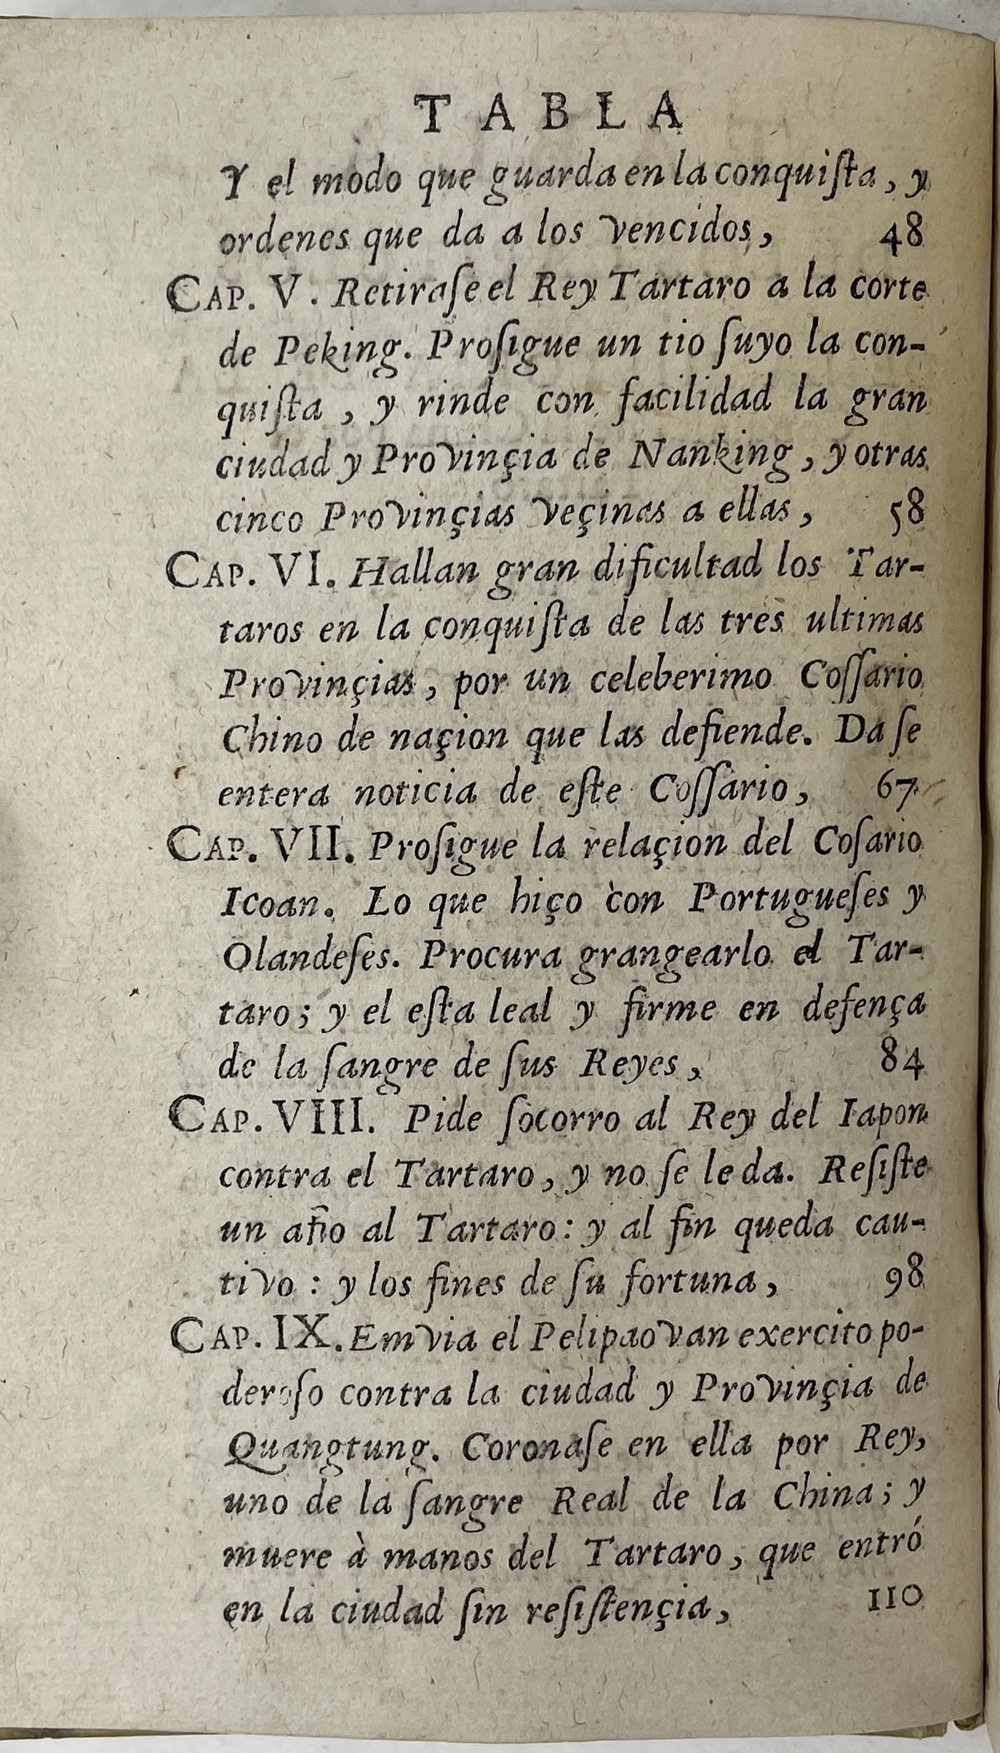 TABLA
Y el modo que guarda en la conquiſta, y
ordenes que da a los vencidos, 48
CAP. V. Retiraſe el Rey Tartaro a la corte
de Peking. Proſigue un tio ſuyo la con-
quiſta, y rinde con facilidad la gran
ciudad y Provinçia de Nanking, y otras
cinco Provinçias veçinas a ellas, 58
CAP. VI. Hallan gran dificultad los Tar-
taros en la conquiſta de las tres ultimas
Provinçias, por un celeberimo Coſſario
Chino de naçion que las defiende. Da ſe
entera noticia de eſte Coſſario, 67
CAP. VII. Proſigue la relaçion del Coſario
Icoan. Lo que hiço con Portugueſes y
Olandeſes. Procura grangearlo el Tar-
taro; y el eſta leal y firme en defença
de la ſangre de ſus Reyes, 84
CAP. VIII. Pide ſocorro al Rey del Iapon
contra el Tartaro, y no ſe le da. Reſiſte
un año al Tartaro: y al fin queda cau-
tivo: y los fines de ſu fortuna, 98
CAP. IX. Emvia el Pelipaovan exercito po-
deroſo contra la ciudad y Provinçia de
Quangtung. Coronaſe en ella por Rey,
uno de la ſangre Real de la China; y
muere à manos del Tartaro, que entró
en la ciudad ſin reſiſtençia, 110